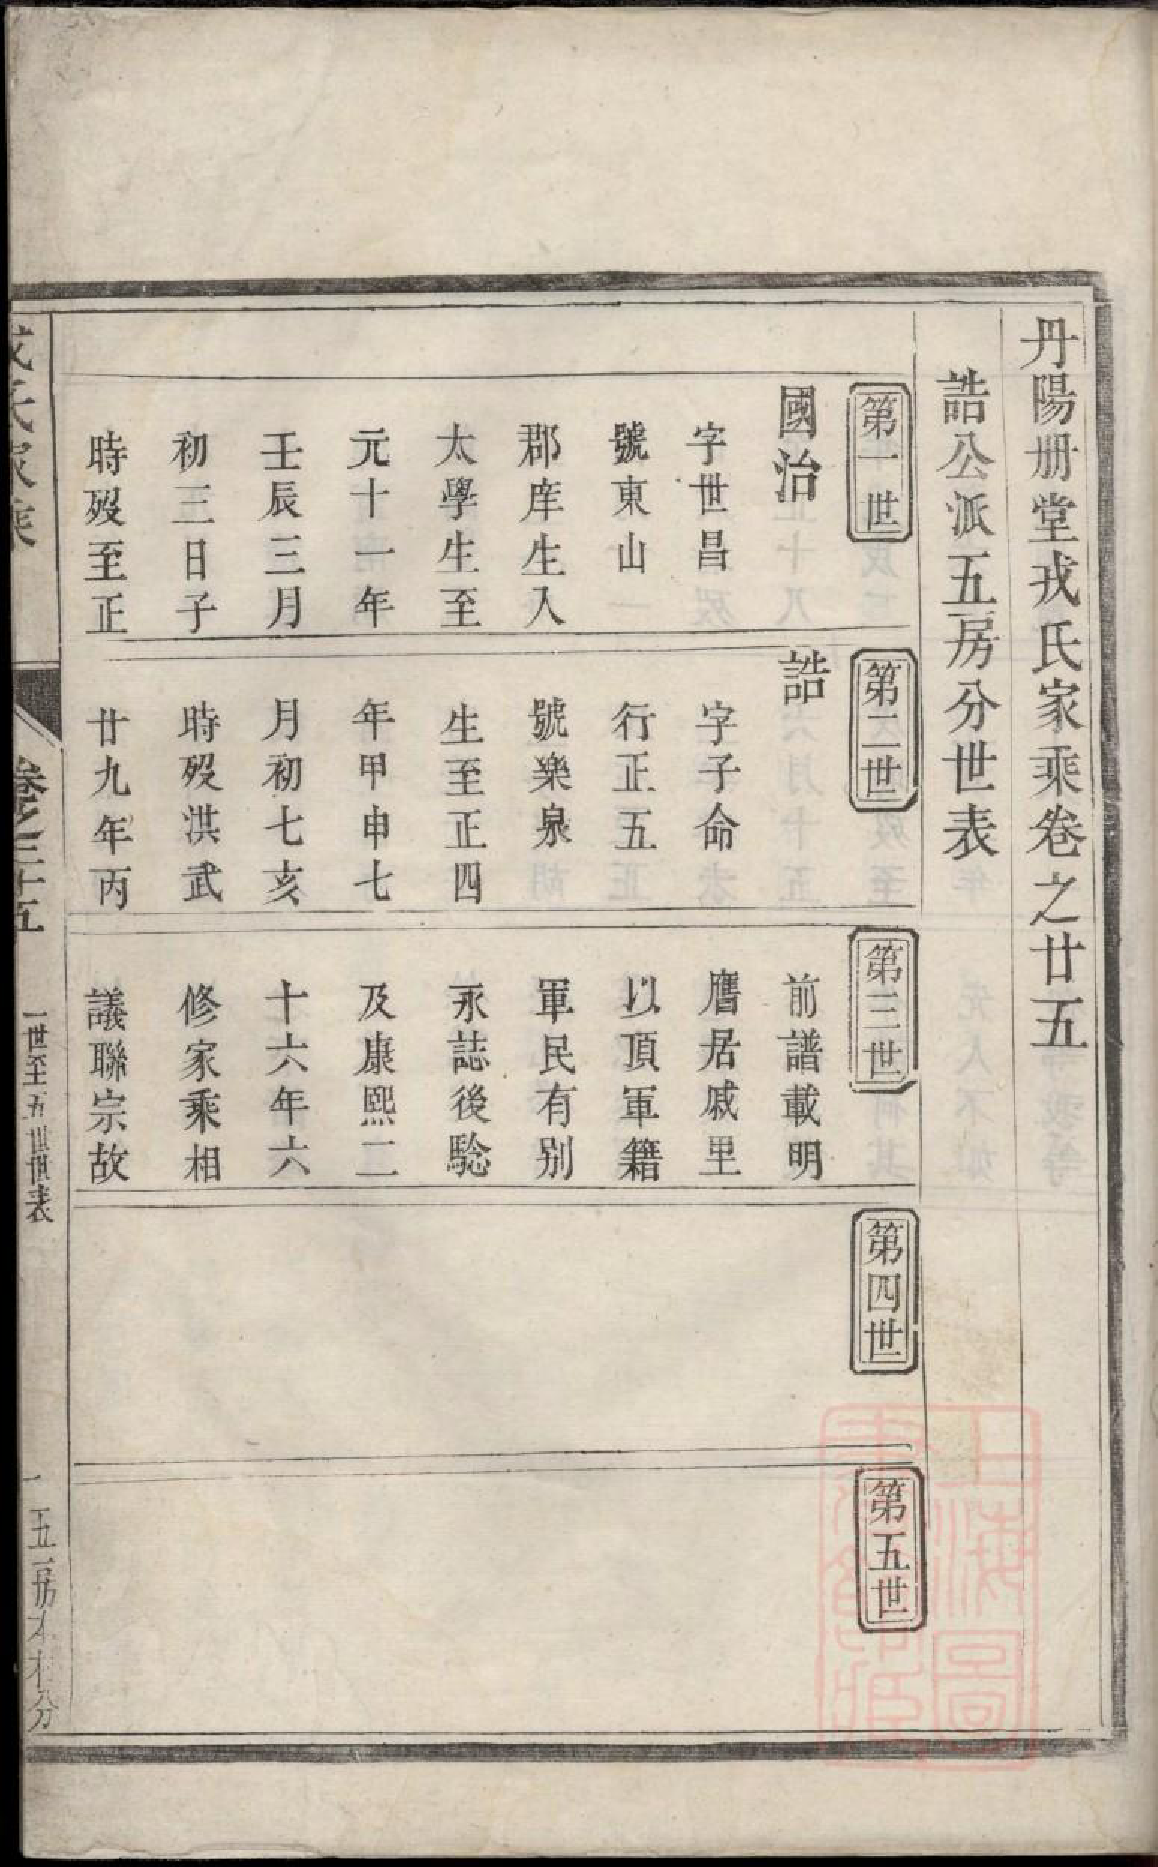 丹陽册堂戎氏家乘卷之廿五
誥公派五房分世表
第一世
國治
字世昌
號東山
郡庠生入
太學生至
元十一年
壬辰三月
初三日子
時歿至正
第二世
誥
字子命
行正五
號樂泉
生至正四
年甲申七
月初七亥
時歿洪武
廿九年丙
第三世
前譜載明
譍居戚里
以頂軍籍
軍民有别
永誌後騐
及康熙二
十六年六
修家乘相
議聯宗故
第四世
第五世
戎氏家乘
卷之二十五
一世至五世世表
一
五房本村分
上海圖